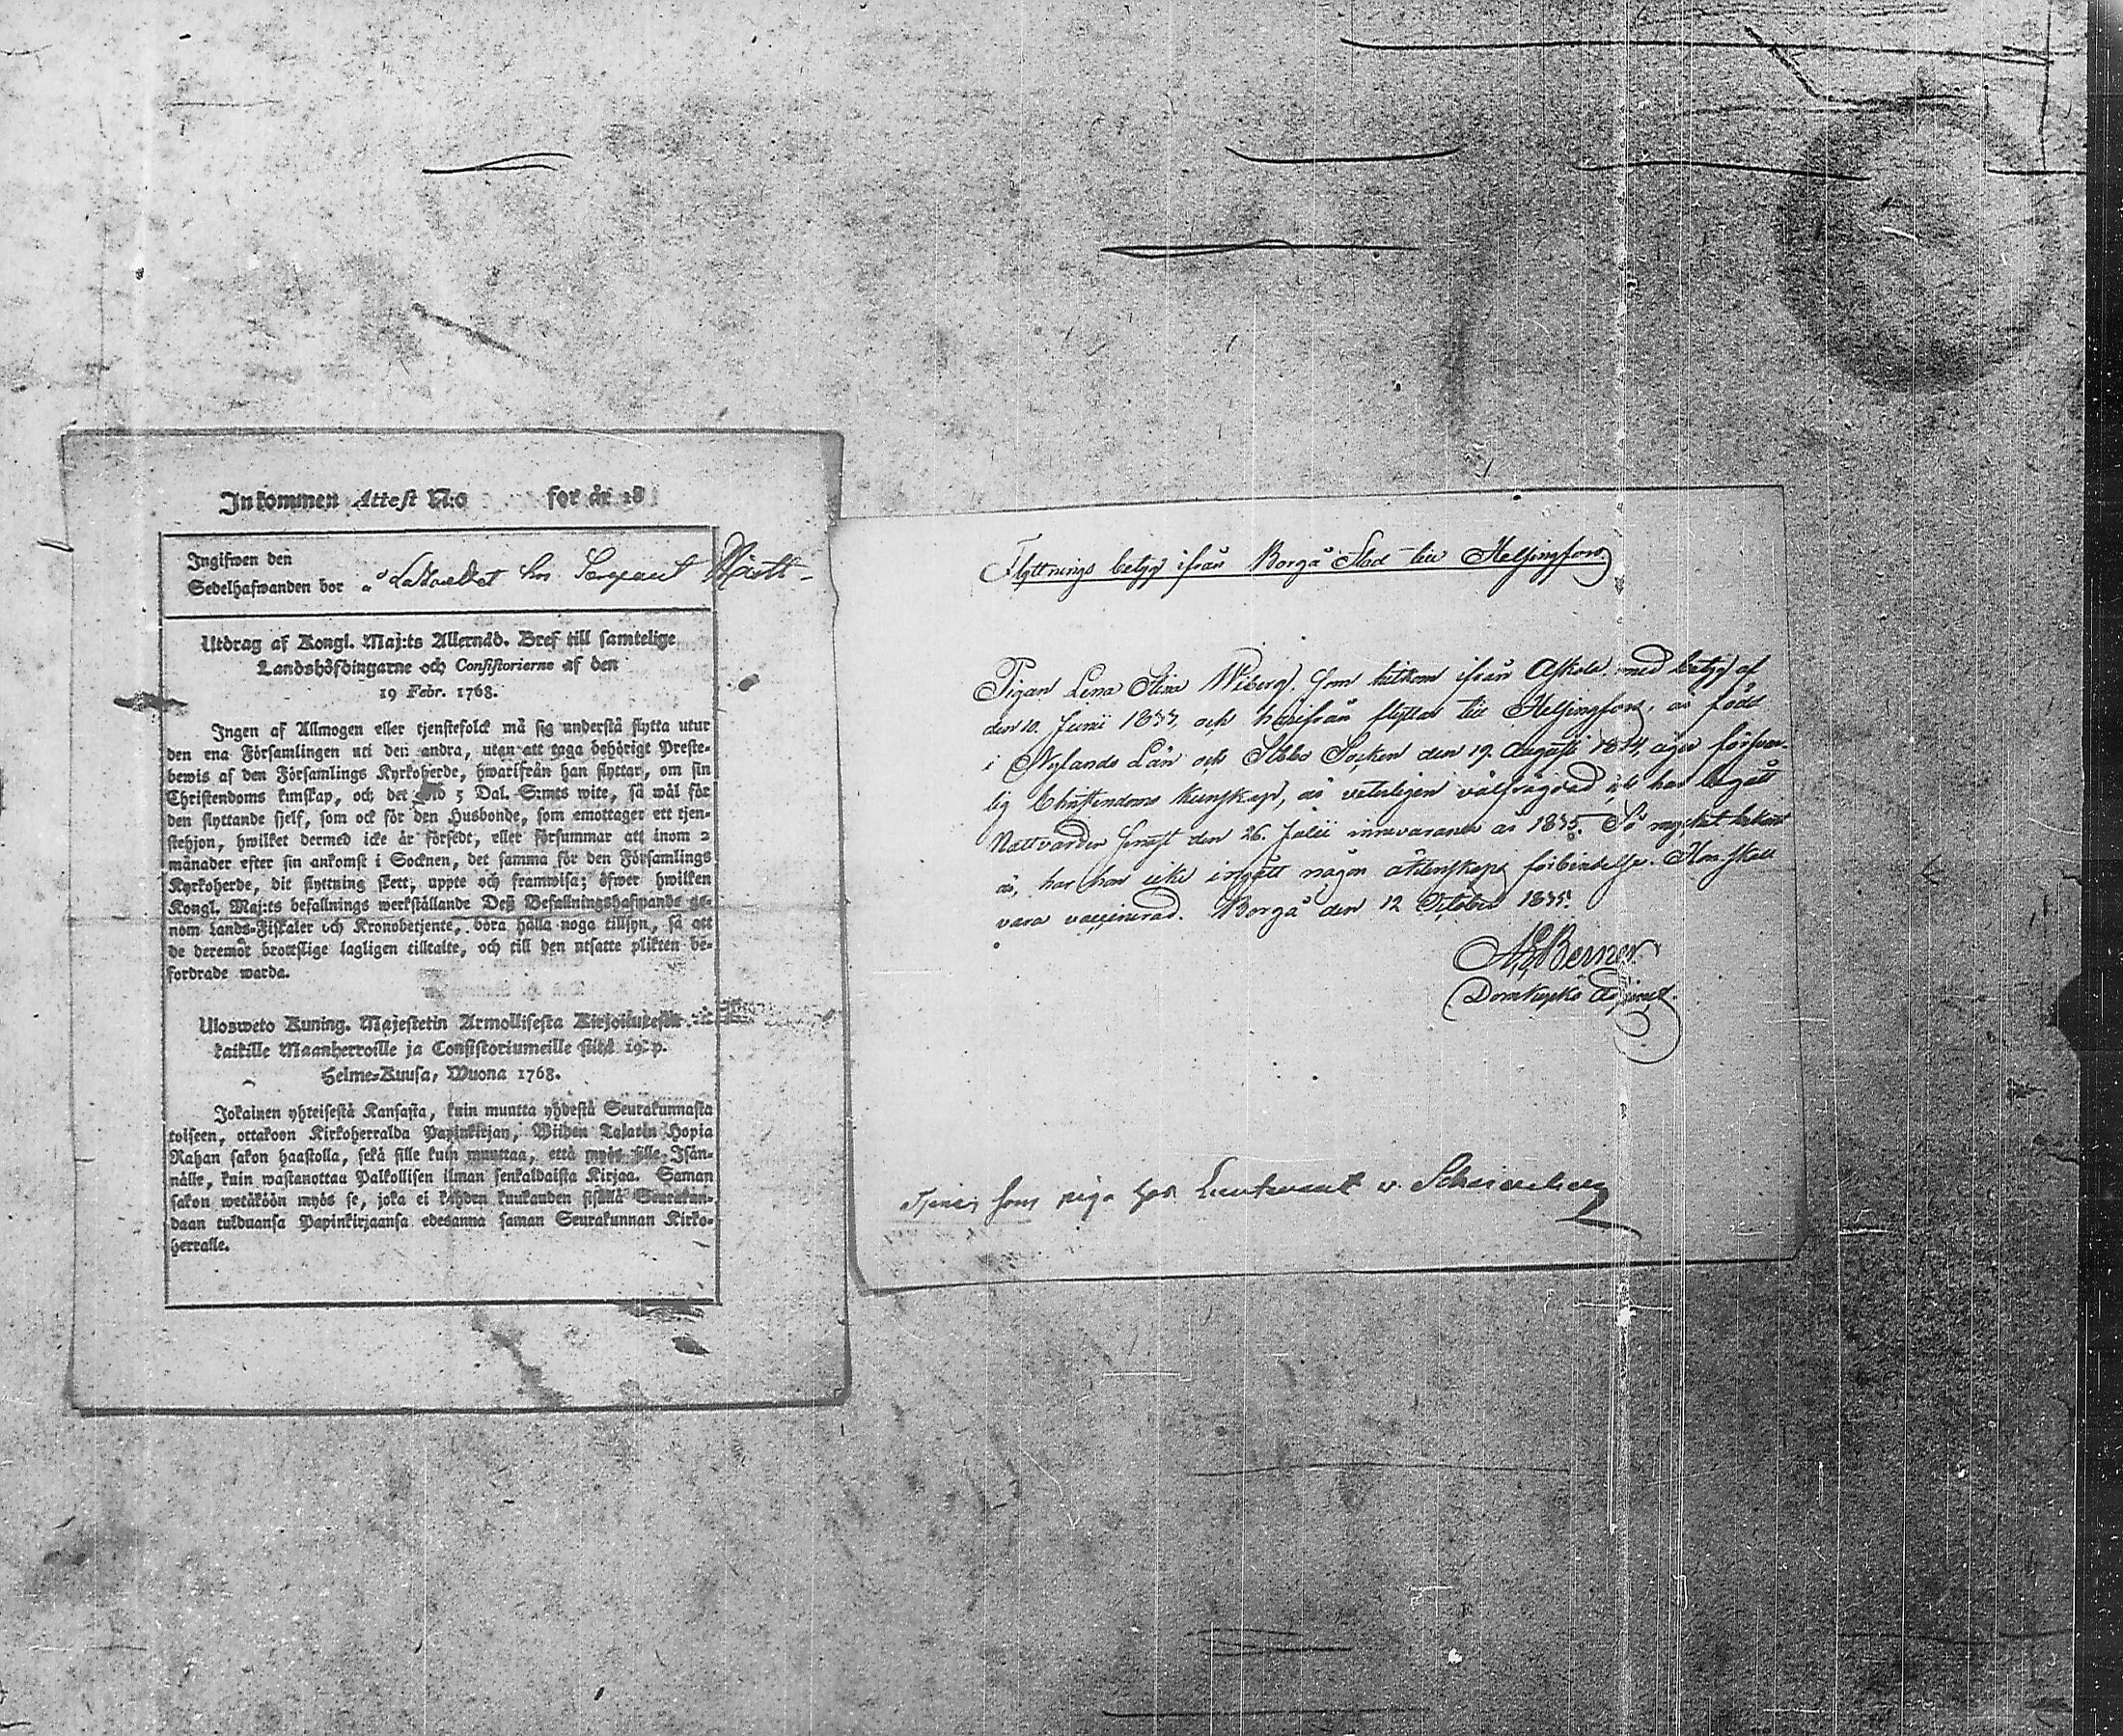 Inkommen Attest N:o for år 18
Ingifwen den
Sedelhafwanden bor Lazarettet hos Sergeant
Utdrag af Kongl. Maj:ts Allernåd. Bref till samtelige
Landshöfdingarne och Consistorierne af den
19 Febr. 1768.
Ingen af Allmogen eller tjenstefolck må sig understå flytta utur
den ena Församlingen uti den andra, utan att taga behörigt Preste-
bewis af den Församlings Kyrkoherde, hwarifrån han flyttar, om sin
Christendoms kunskap, och det wid 5 Dal. S:mts wite, så wäl för
den flyttande sjelf, som ock för den Husbonde, som emottager ett tjen-
stehjon, hwilket dermed icke är försedt, eller försummar att inom 2
månader efter sin ankomst i Socknen, det samma för den Församlings
Kyrkoherde, dit flyttning skett, uppte och framwisa; öfwer hwilken
Kongl. Maj:ts befallnings werkställande Deß Befallningshafwande ge-
nom Lands-Fiskaler och Kronobetjente, böra hålla noga tillsyn, så att
de deremot brottslige lagligen tilltalte, och till den utsatte plikten be-
fordrade warda.
Ulosweto Kuning. Majestetin Armollisesta Kirjoituxesta
kaikille Maanherroille ja Consistoriumeille siitä 19. p.
Helme-Kuusa, Wuona 1768.
Jokainen yhteisestä Kansasta, kuin muutta yhdestä Seurakunnasta
toiseen, ottakoon Kirkoherralda Papinkirjan, Wiiden Talarin Hopia
Rahan sakon haastolla, sekä sille kuin muuttaa, että myös sille Isän-
nälle, kuin wastanottaa Palkollisen ilman senkaldaista Kirjaa. Saman
sakon wetäköön myös se, joka ei kahden kuukauden sisällä Seurakun-
daan tulduansa Papinkirjaansa edesanna saman Seurakunnan Kirko-
herralle.
Flyttnings betyg ifrån Borgå Stad till Helsingfors.
Pigan Lena Stina Wiberg, som hitkom ifrån Askola med betyg af
den 10. Junii 1833 och härifrån flyttar till Helsingfors, är född
i Nylands Län och Sibbo Socken den 19. Augusti 1814, äger försvar-
lig Christendoms kunskap, är veterligen välfrägdad och har begått
Nattvarden senast den 26. Julii innevarande år 1835. Så mycket bekant
är, har hon icke ingått någon äktenskaps förbindelse. Hon skall
vara vaccinerad. Borgå den 12 October 1835.
Berner
Domkyrko Adjunct.
Tjenar som piga hos Lieutenant v.